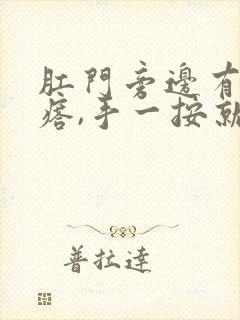 肛門旁邊有
痞,手一按就
普拉達